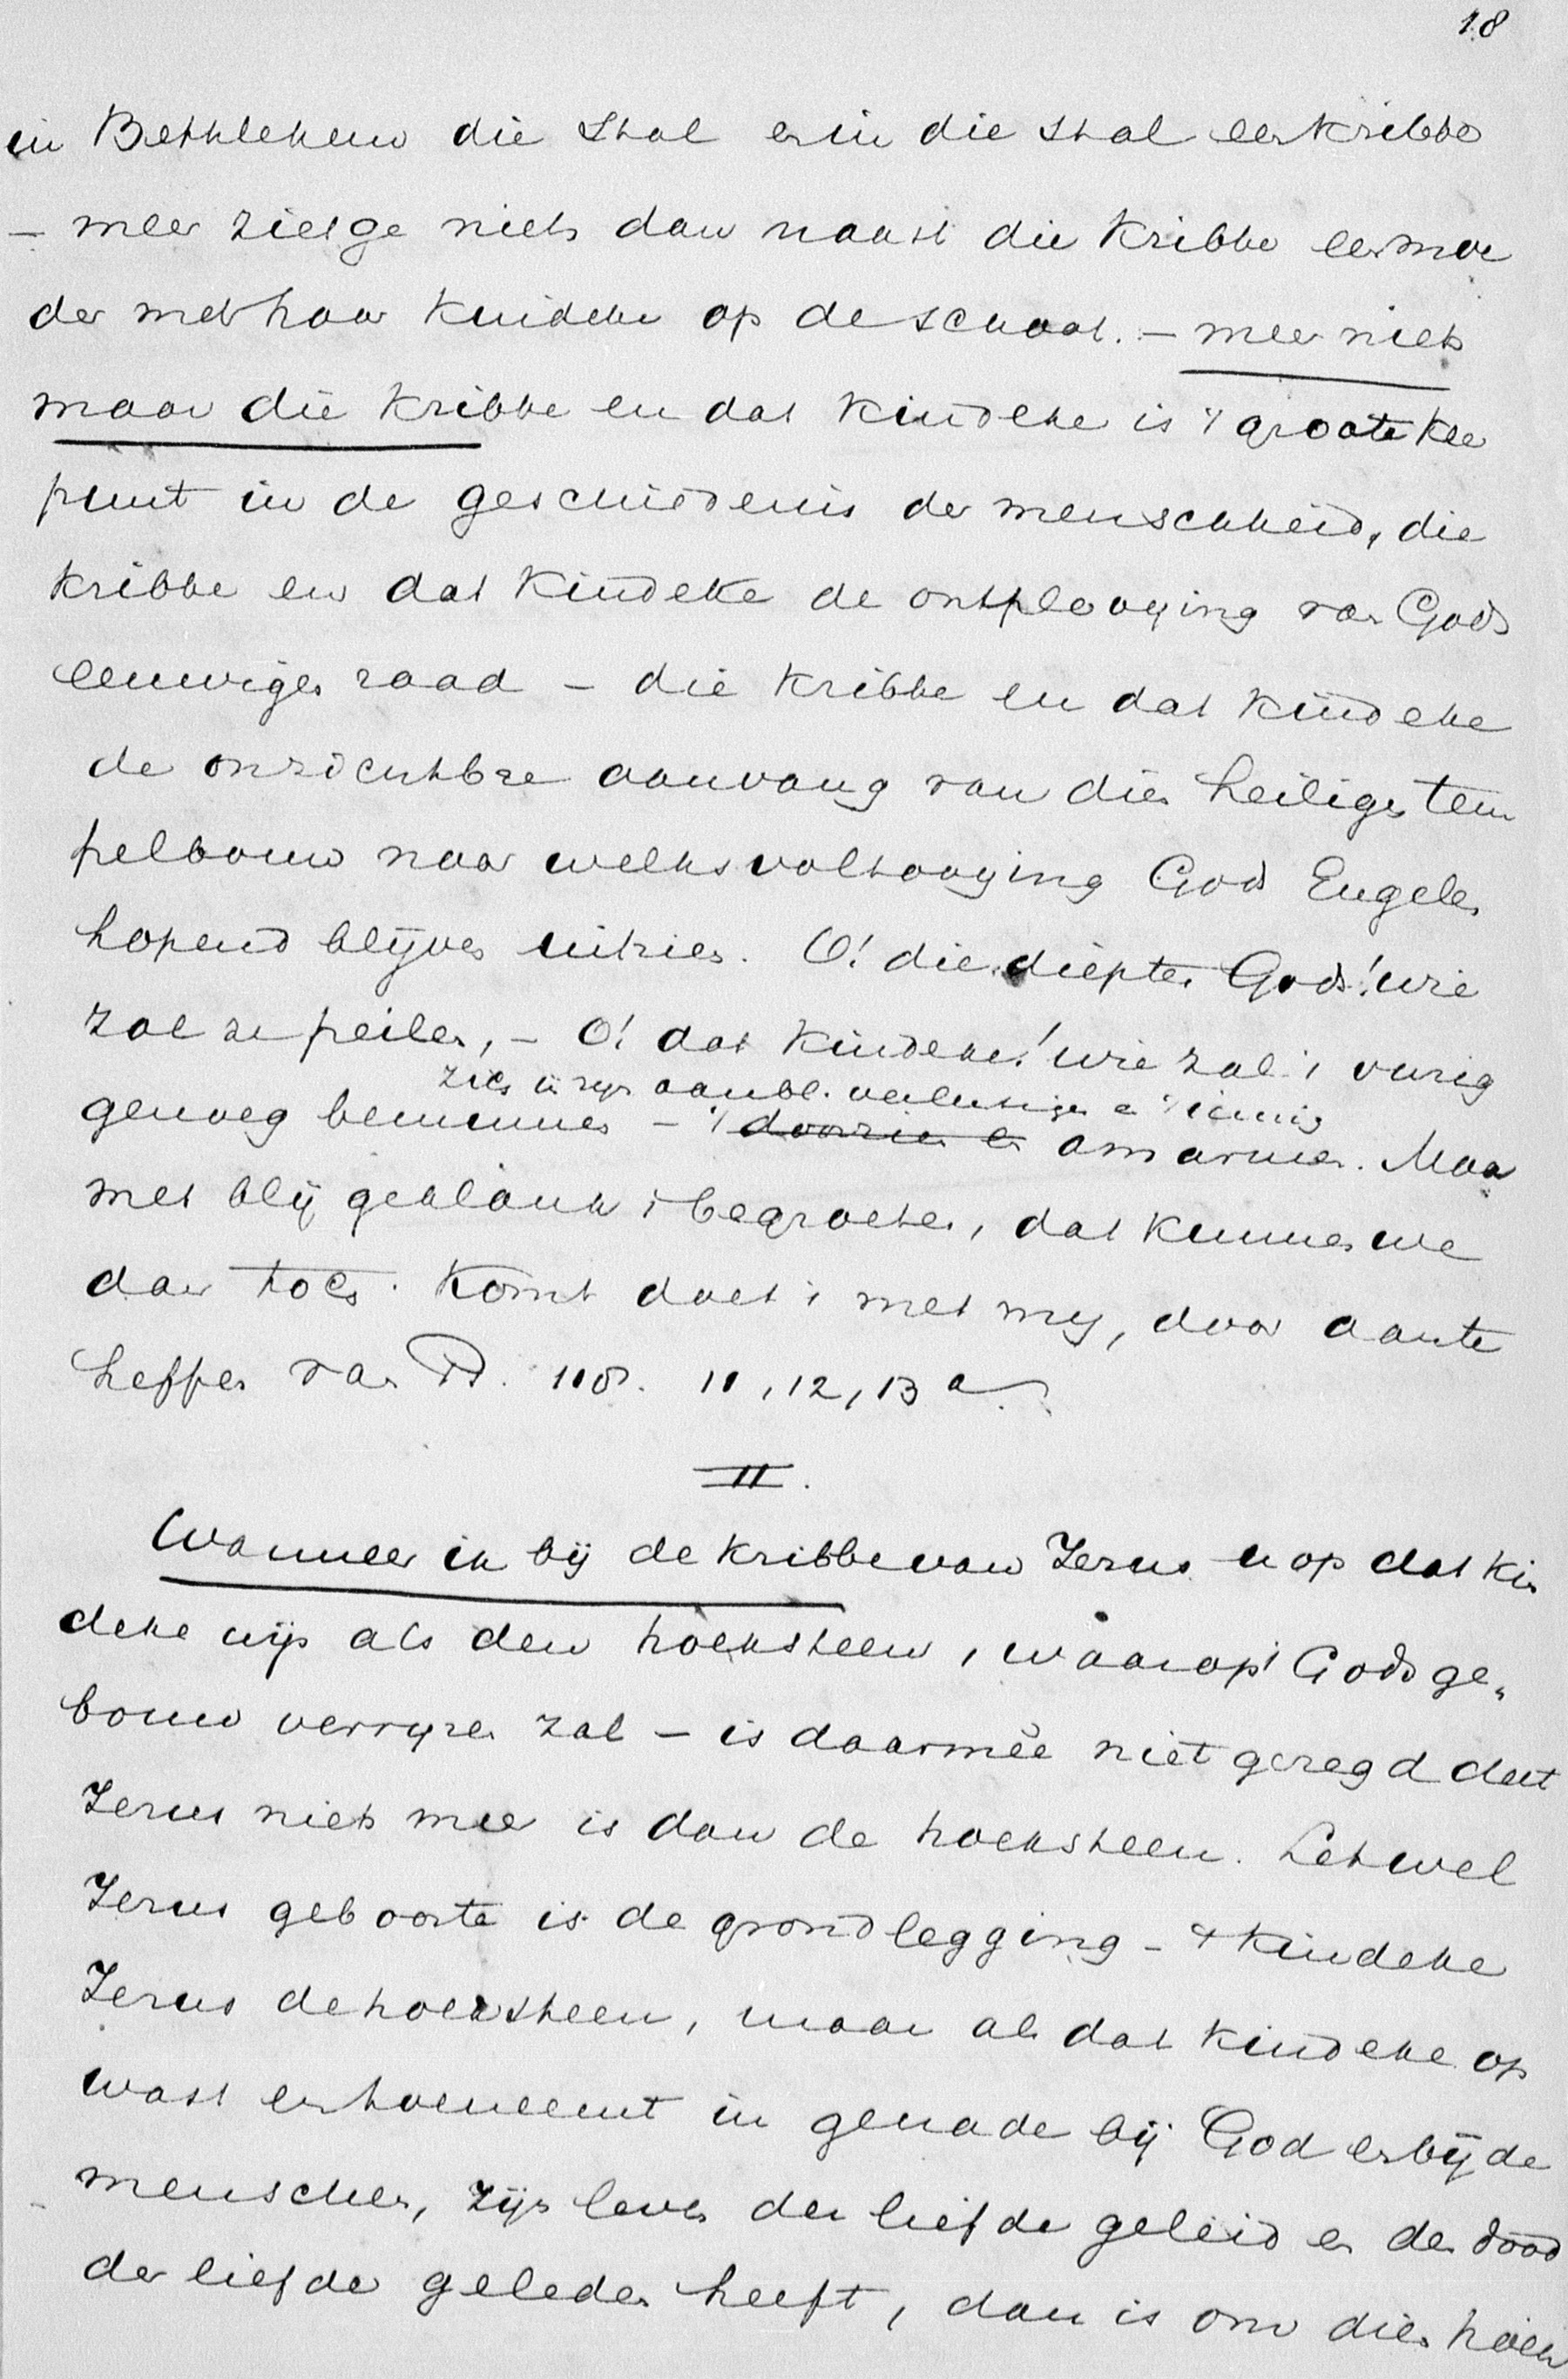 18
in Bethlehem die stal en in die stal een kribbe
- meer ziet ge niets dan naast die kribbe een moe
der met haar kindeke op de schoot. - meer niets
maar die kribbe en dat kindeke is 't groote kee
punt in de geschiedenis der menschheid, die
kribbe en dat kindeke de ontplooying van Gods
eeuwigen raad - die kribbe en dat kindeke
de onzichtbre aanvang van dien heiligen tem
pelbouw naar welks voltooying Gods Engelen
hopend blijven uitzien. O! die diepten Gods! wie
zal ze peilen, - O! dat kindeke! wie zal 't vurig
zich in zijn aanbl. verlustigen en 't innig
genoeg beminnen - 't doorzien en omarmen. Maar
met blij geklank 't begroeten, dat kunnen we
dan toch. Komt doet 't met mij, door aan te
heffen van Ps. 118. 11, 12, 13 a.
II.
Wanneer ik bij de kribbe van Jezus u op dat kin
deke wijs als den hoeksteen, waarop 't Gods ge„
bouw verrijzen zal - is daarmêe niet gezegd dat
Jezus niets meer is dan de hoeksteen. Let wel
Jezus geboorte is de grondlegging - 't kindeke
Jezus de hoeksteen, maar als dat kindeke op
wast en toeneemt in genade bij God en bij de
menschen, zijn leven der liefde geleid en den dood
der liefde geleden heeft, dan is om dien hoek